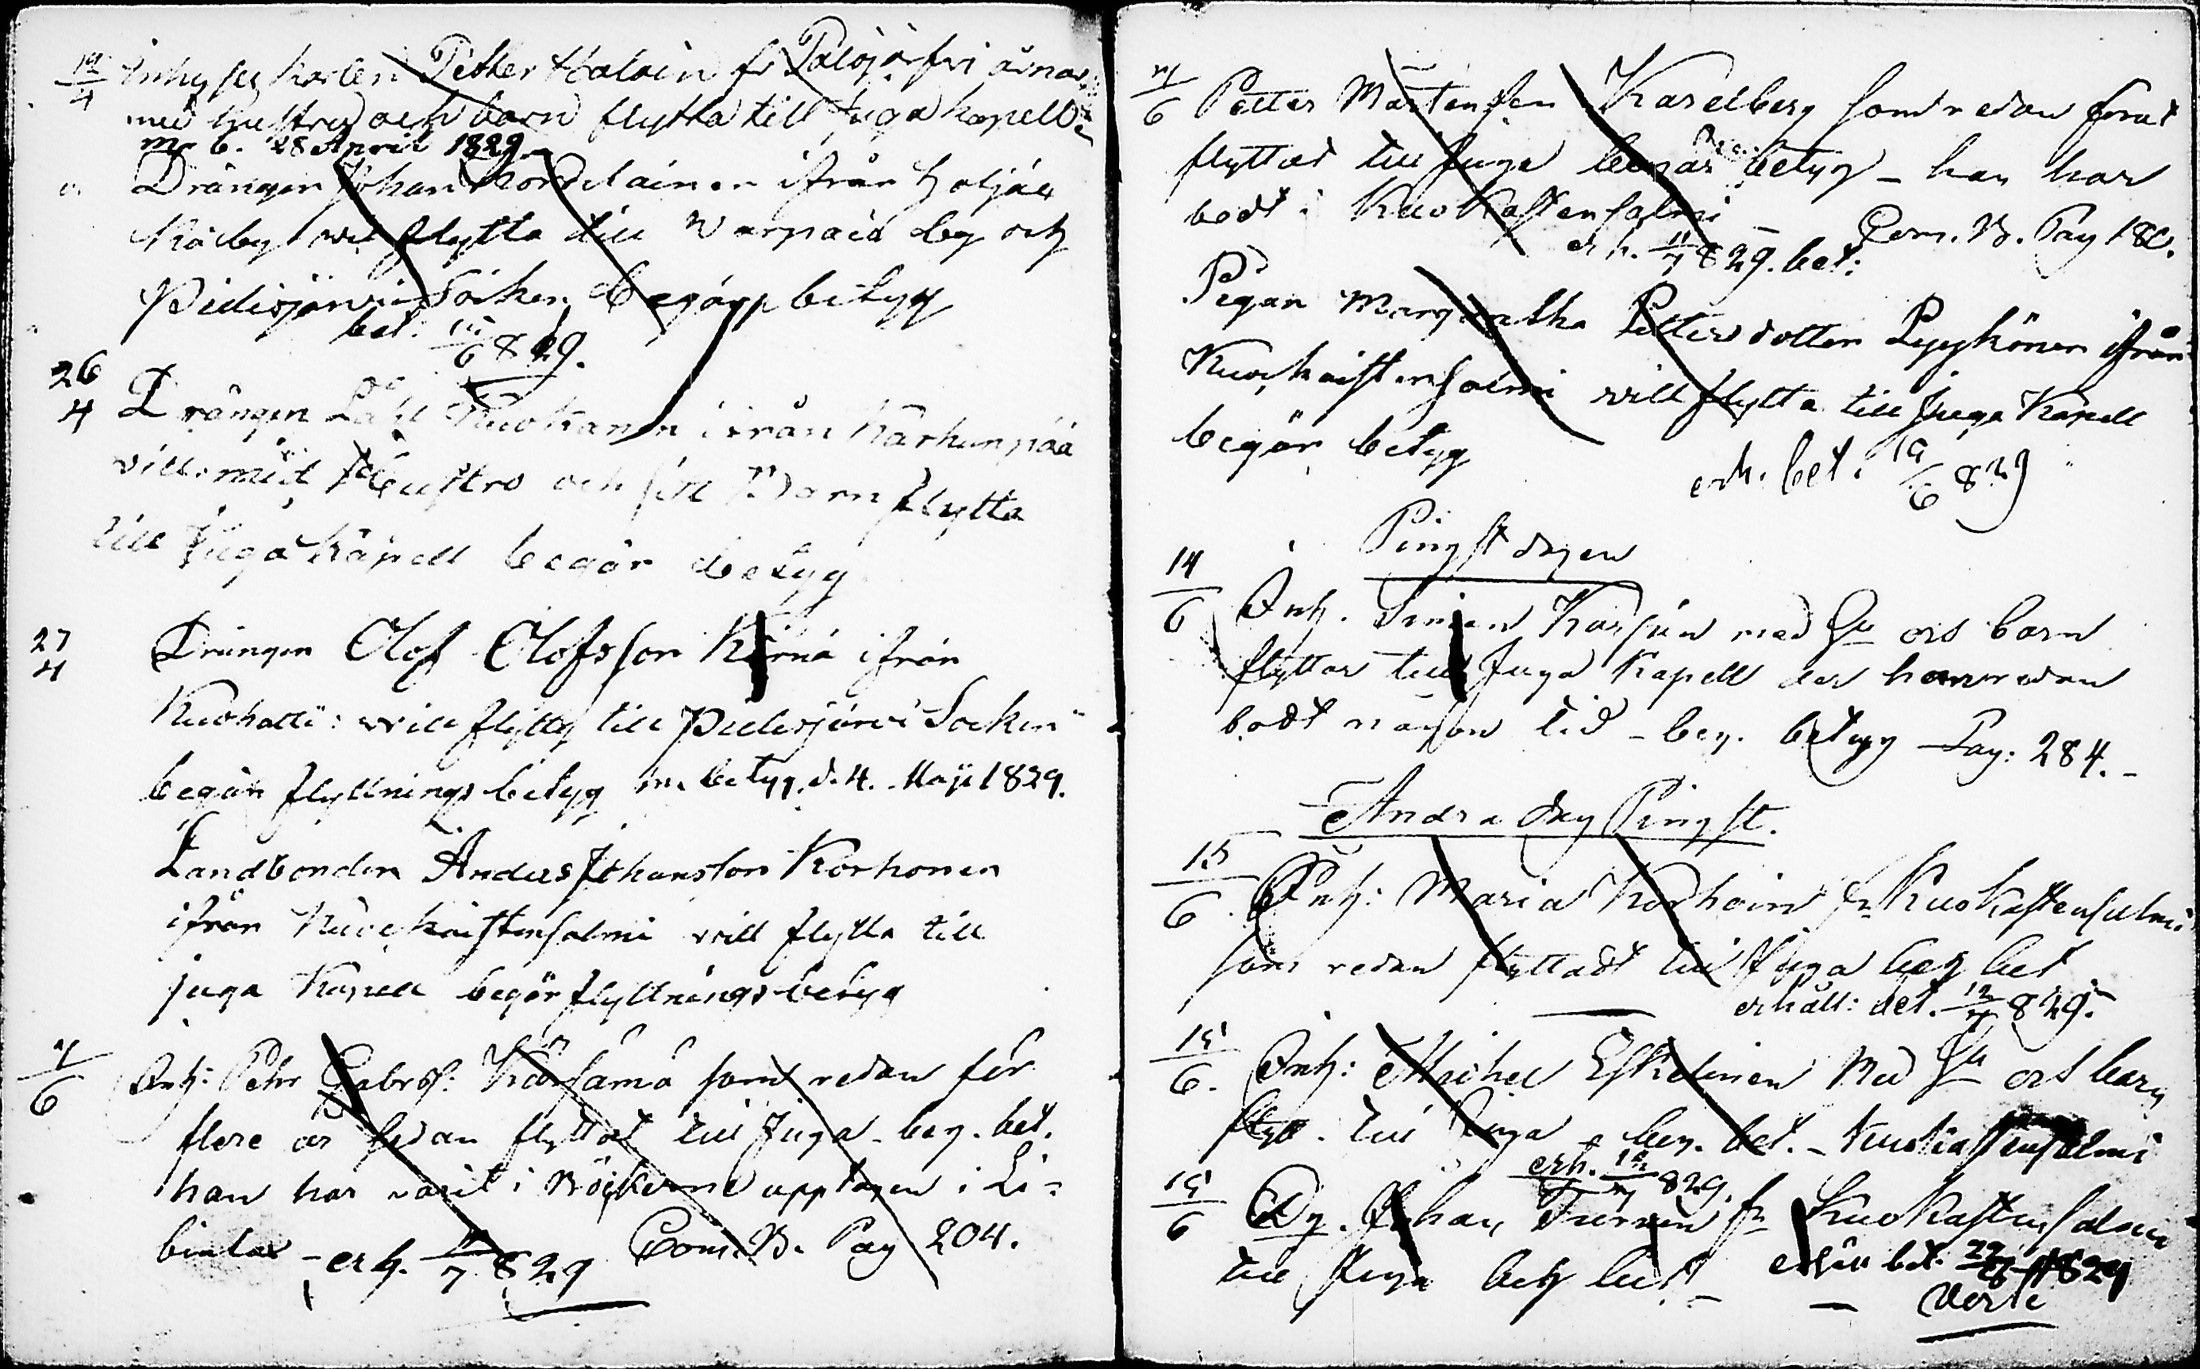 19/4 Inhyses Karlen Petter Halain fr Palojärfvi ärnar
med hustru och barn flytta till Juga kapell
m. b. 28 April 1829.
Drängen Johan Kordelainen ifrån Haljäla
by vill flytta till Warpaiö by och
Pielisjärvi Socken begärr betyg
bet. 6 829.
26/4 Drängen Påhl Kuokanen ifrån Karhunpää
vill med Hustro och sitt Barn flytta
till Juga Kapell begär betyg
27/4 Drängen Olof Olofsson Kärnä ifrån
Kuohatti: will flytta till Pielisjärvi Socken
begär flyttnings betyg m. betyg. d. 4. Maji 1829.
Landbonden Anders Johansson Korhonen
ifrån Kuockaistensalmi will flytta till
juga Kapell begör flyttningsbetyg
/6 Inh: Petr Gabrs: Kärsämä som redan för
flere år sedan flyttat till Juga - beg. bet.
han har varit i Böckerne upptagen i Li=
bintar - erh. 11/7 829 Com. B. Pag 204.
/6 Petter Mårtensson Karelberg som redan förut
flyttat till Juga begär betyg - han har
bodt i Kuokastensalmi
erh. 11/7 829. bet: Com. B. Pag 180.
Pigan Margaretha Pettersdotter Lyykönen ifrån
Kuockaistensalmi will flytta till Juga Kapell
begär betyg
erh. bet. 19/6 829
Pingstdagen
14/6 Inh. Simon Karjain med Hu ors barn
flyttar till Juga Kapell der han redan
bodt någon tid - beg. betyg Pag: 284. -
Andra dag Pingst.
15/6 Inh: Maria Korhoin fr Kuokastensalmi
som redan flyttadt till Juga beg bet
erhåll: bet. 12/7 829.
15/6. Inh: Michel Eskelinen Med Hu ors barn
flytt. till Juga - beg. bet. - Kuokastensalmi
erh. 12/7 829.
15/6 Dg. Johan Turunen fr Kuokastensalmi
till Juga beg bet - erhåll bet. 22/6 1829
Verte